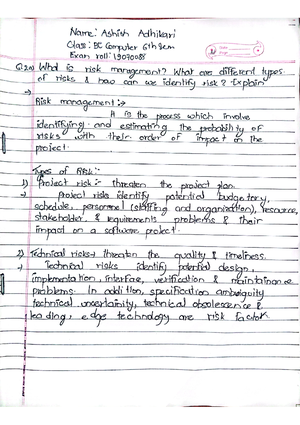 Name: Ashish Adhikari
Class: BE Computer 6th Sem
Exam roll: 19070085
Q.2a) What is risk management? What are different types
of risks & how can we identify risk? Explain
→
Risk management :-
It is the process which involve
identifiying and estimating the probability of
risks with their order of impact on the
project.
Types of Risk:-
1) Project risk :- threaten the project plan.
→ project risk identify potential budgetory,
schedule, personnel (staffing and organization), resource,
stakeholder, & requirements problems & their
impact on a software project.
2) Technical risks:- threaten the quality & timeliness.
→ Technical risks identify potential design,
implementation, interface, verification & maintainance
problems. In addition, specification ambiguity
technical uncertainity, technical obsolescence &
leading, edge technology are risk factor.